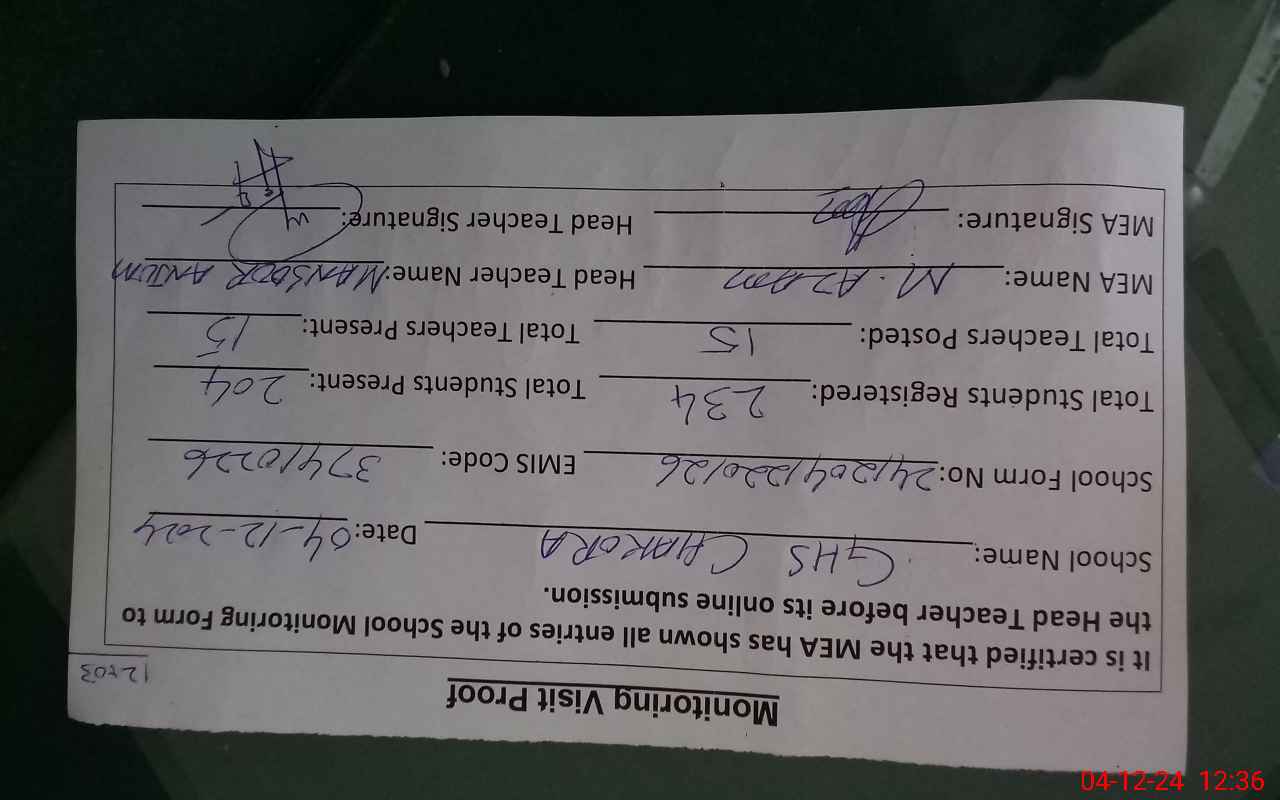 Monitoring Visit Proof
12:03
It is certified that the MEA has shown all entries of the School Monitoring Form to
the Head Teacher before its online submission.
School Name: GHS CHAKORA Date: 04-12-2024
School Form No: 2412041220126 EMIS Code: 37410226
Total Students Registered: 234 Total Students Present: 204
Total Teachers Posted: 15 Total Teachers Present: 15
MEA Name: M. AZAM Head Teacher Name: MANSOOR ANJUM
MEA Signature: Head Teacher Signature:
04-12-24 12:36